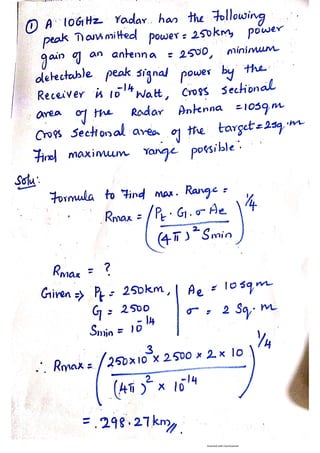 ① A 10GHz radar has the following
peak Transmitted power = 250km, power
gain of an antenna = 2500, minimum
detectable peak signal power by the
Receiver is 10⁻¹⁴ Watt, Cross Sectional
area of the Radar Antenna = 10sq.m
Cross Sectional area of the target = 2sq.m
Find maximum range possible.
Solu:
Formula to Find max. Range =
Rmax = (Pt . G . σ Ae / (4π)² Smin)^1/4
Rmax = ?
Given => Pt = 250km, Ae = 10sqm
G = 2500 σ = 2 Sq. m
Smin = 10⁻¹⁴
∴ Rmax = (250x10³ x 2500 x 2 x 10 / (4π)² x 10⁻¹⁴)^1/4
= .298.27km//